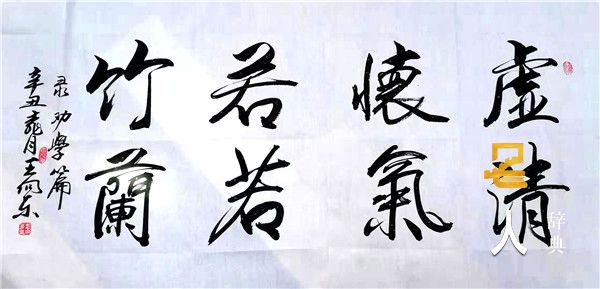 虚懷若竹
清氣若蘭
录劝學篇
辛丑 月王
名人
辞典